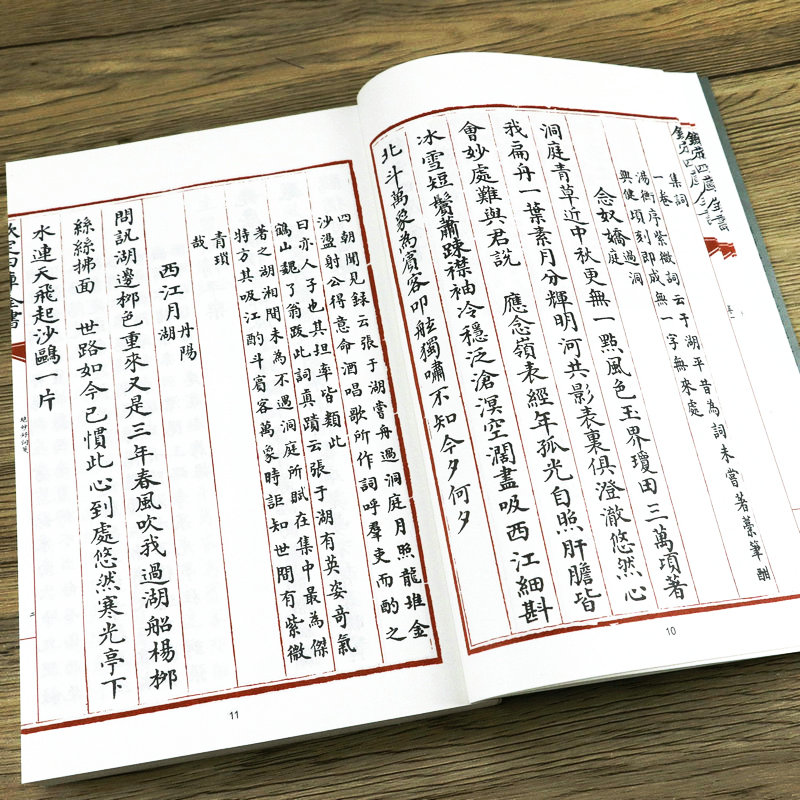 欽定四庫全書
集詞
一卷
湯衡序紫微詞云于湖平昔為詞未嘗著藁筆酣
興健頃刻即成無一字無來處
念奴嬌 過洞庭
洞庭青草近中秋更無一點風色玉界瓊田三萬頃著
我扁舟一葉素月分輝明河共影表裏俱澄澈悠然心
會妙處難與君說 應念嶺表經年孤光自照肝膽皆
冰雪短鬢蕭疎襟袖冷穩泛滄溟空濶盡吸西江細斟
北斗萬象為賓客叩舷獨嘯不知今夕何夕
10
四朝聞見錄云張于湖嘗舟過洞庭月照龍堆金
沙盪射公得意命酒唱歌所作詞呼羣吏而酌之
曰亦人子也其坦率皆類此
鶴山魏了翁跋此詞真蹟云張于湖有英姿奇氣
著之湖湘間未為不遇洞庭所賦在集中最為傑
特方其吸江酌斗賓客萬象時詎知世間有紫微
青瑣
哉
西江月 丹陽湖
問訊湖邊栁色重來又是三年春風吹我過湖船楊栁
絲絲拂面 世路如今已慣此心到處悠然寒光亭下
水連天飛起沙鷗一片
欽定四庫全書
絕妙好詞箋
二
11